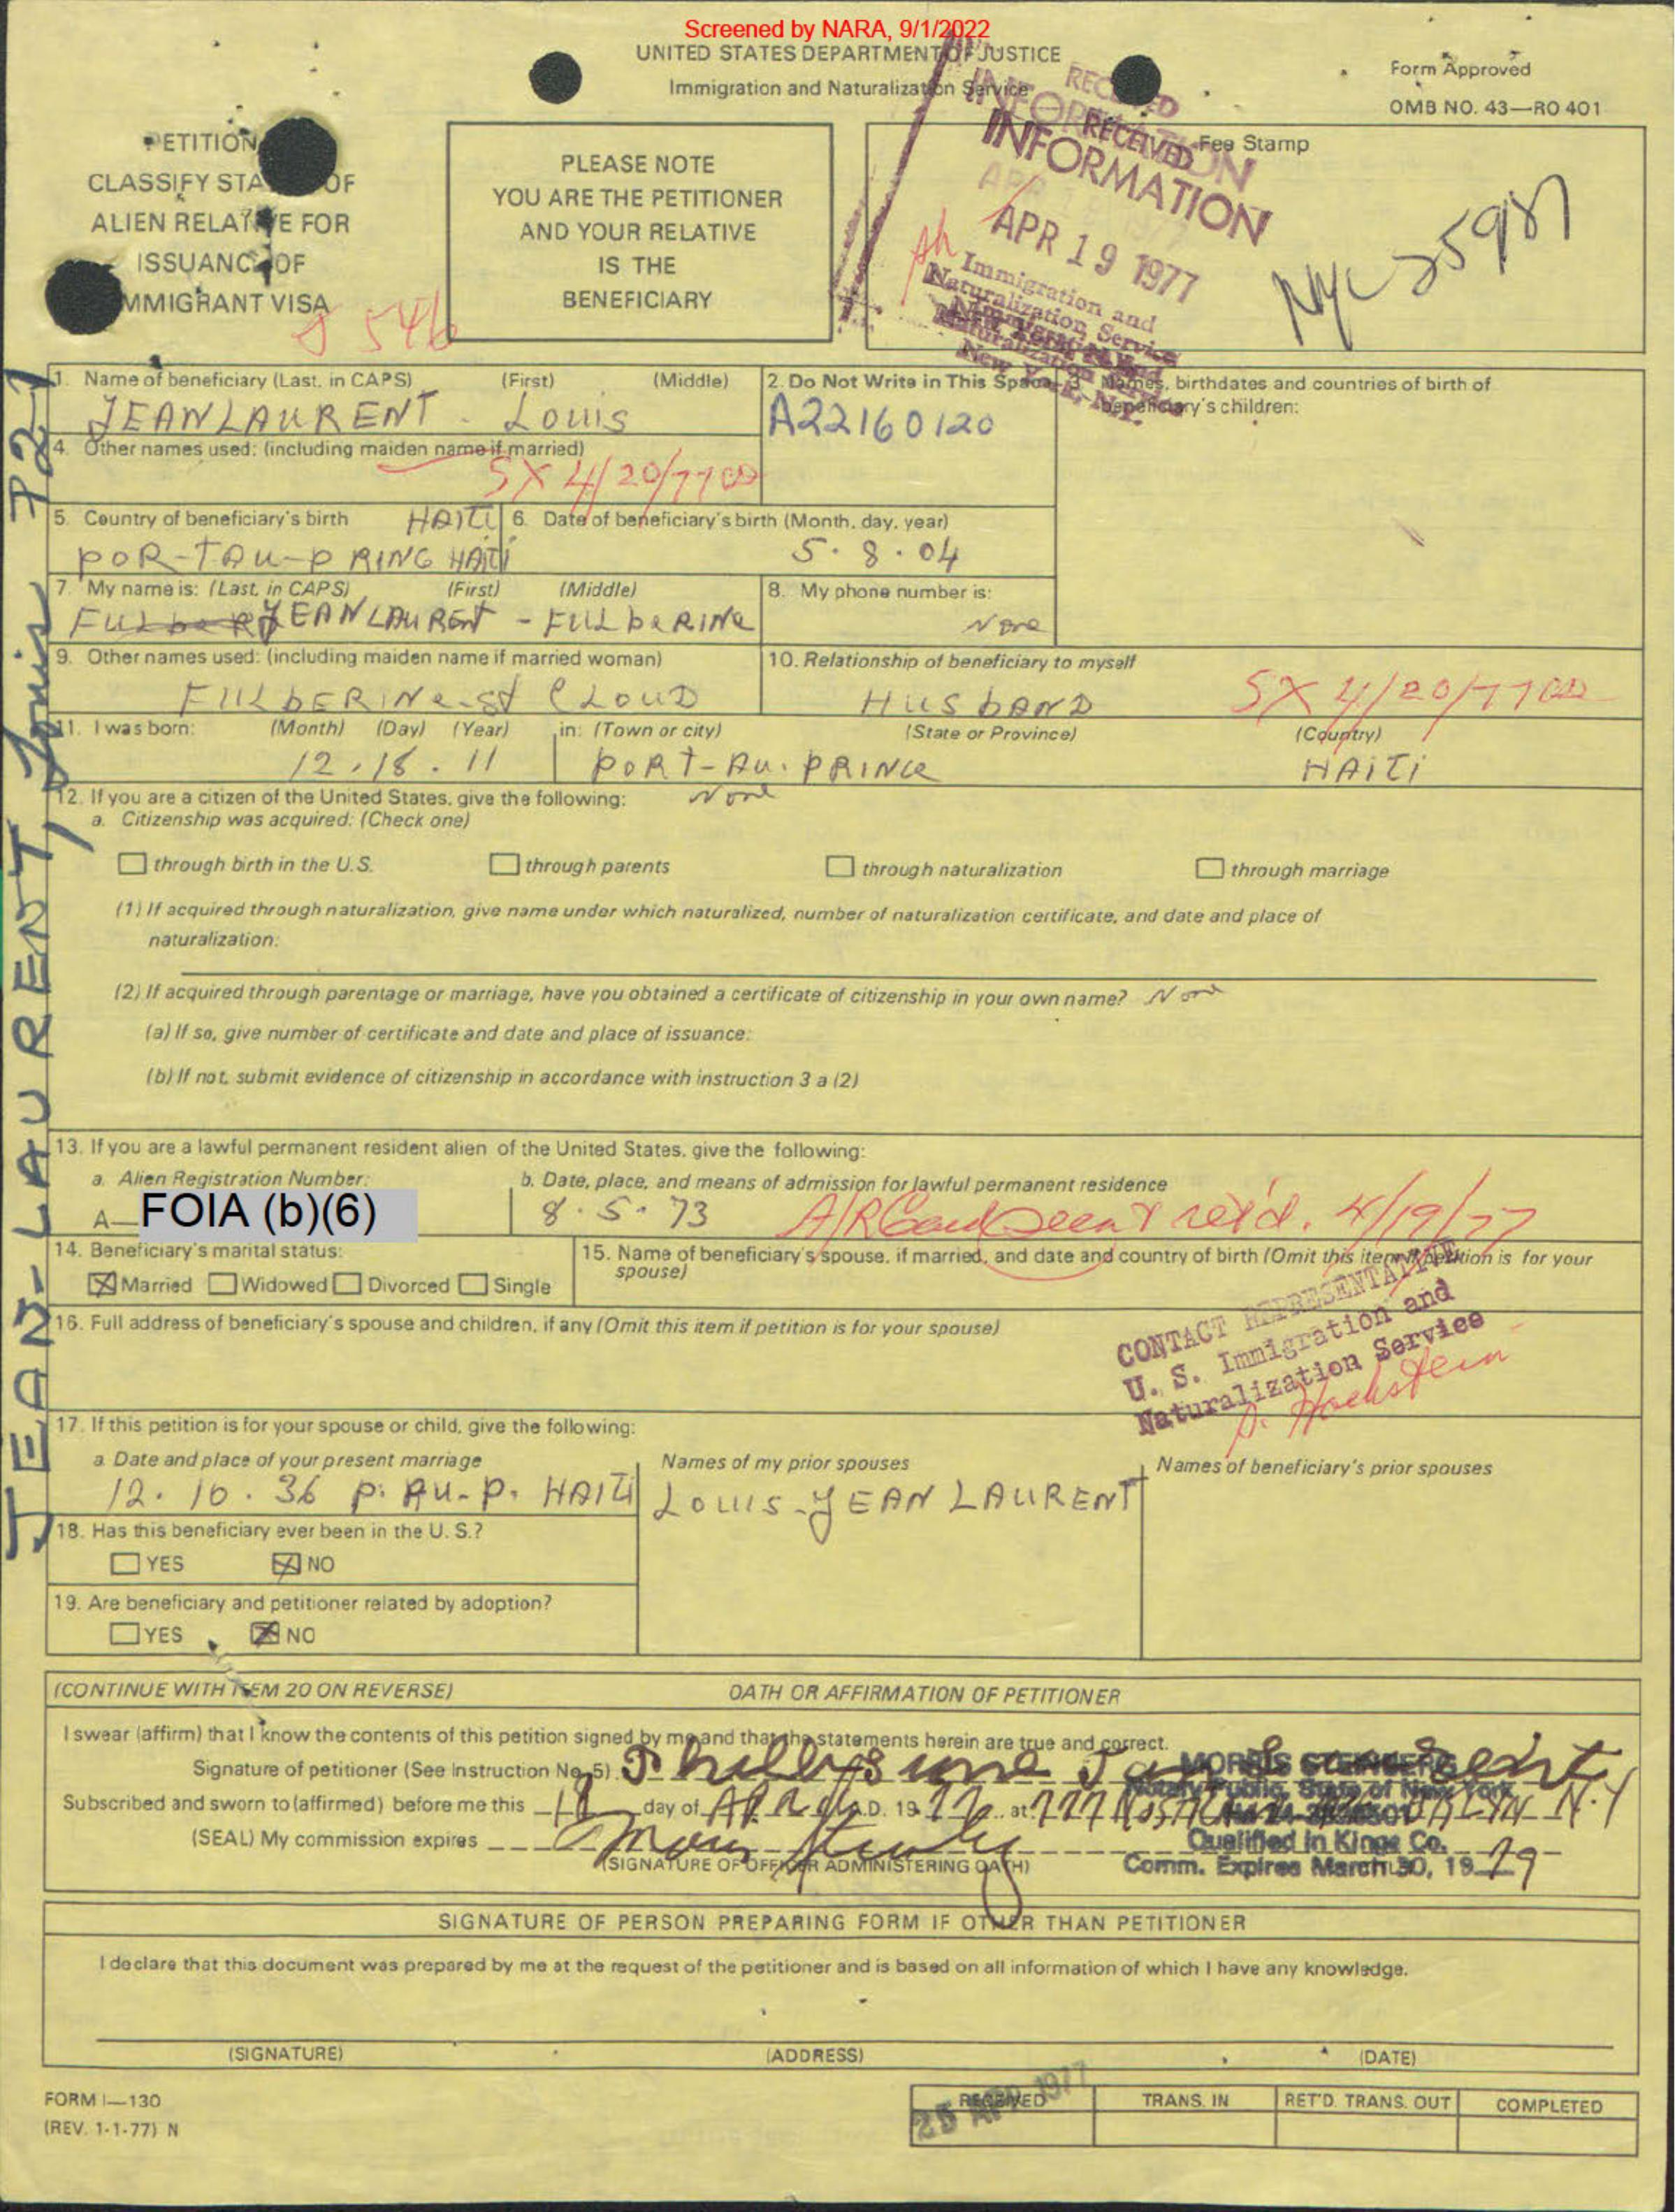 Screened by NARA, 9/1/2022
UNITED STATES DEPARTMENT OF JUSTICE
Immigration and Naturalization Service
Form Approved
OMB NO. 43—RO 401
PETITION
CLASSIFY STA OF
ALIEN RELATIVE FOR
ISSUANCE OF
IMMIGRANT VISA
PLEASE NOTE
YOU ARE THE PETITIONER
AND YOUR RELATIVE
IS THE
BENEFICIARY
Fee Stamp
RECEIVED
INFORMATION
APR 19 1977
Immigration and
Naturalization Service
New York, N.Y.
546
JEAN-LAURENT, Louis
1. Name of beneficiary (Last, in CAPS) (First) (Middle)
JEANLAURENT - Louis
2. Do Not Write in This Space
A22160120
3. Names, birthdates and countries of birth of
beneficiary's children:
4. Other names used: (including maiden name if married)
SX 4/20/77
5. Country of beneficiary's birth HAITI
POR-TAU-PRING HAITI
6. Date of beneficiary's birth (Month, day, year)
5.8.04
7. My name is: (Last, in CAPS) (First) (Middle)
JEANLAURENT - FULbERINe
8. My phone number is:
None
9. Other names used: (including maiden name if married woman)
FULbERINe-st CLOUD
10. Relationship of beneficiary to myself
HUSbAND
SX 4/20/77
11. I was born: (Month) (Day) (Year) in: (Town or city) (State or Province) (Country)
12.18.11 PORT-AU-PRINCe HAITI
12. If you are a citizen of the United States, give the following: None
a. Citizenship was acquired: (Check one)
through birth in the U.S. through parents through naturalization through marriage
(1) If acquired through naturalization, give name under which naturalized, number of naturalization certificate, and date and place of
naturalization:
(2) If acquired through parentage or marriage, have you obtained a certificate of citizenship in your own name? Non
(a) If so, give number of certificate and date and place of issuance:
(b) If not, submit evidence of citizenship in accordance with instruction 3 a (2)
13. If you are a lawful permanent resident alien of the United States, give the following:
a. Alien Registration Number:
A— FOIA (b)(6)
b. Date, place, and means of admission for lawful permanent residence
8.5.73 A/R Card seen & ret'd. 4/19/77
14. Beneficiary's marital status:
Married Widowed Divorced Single
15. Name of beneficiary's spouse, if married, and date and country of birth (Omit this item if petition is for your
spouse)
16. Full address of beneficiary's spouse and children, if any (Omit this item if petition is for your spouse)
CONTACT REPRESENTATIVE
U. S. Immigration and
Naturalization Service
Hochstein
17. If this petition is for your spouse or child, give the following:
a. Date and place of your present marriage
12.10.36 P. AU-P. HAITI
Names of my prior spouses
LOUIS-JEAN LAURENT
Names of beneficiary's prior spouses
18. Has this beneficiary ever been in the U. S.?
YES NO
19. Are beneficiary and petitioner related by adoption?
YES NO
(CONTINUE WITH ITEM 20 ON REVERSE) OATH OR AFFIRMATION OF PETITIONER
I swear (affirm) that I know the contents of this petition signed by me and that the statements herein are true and correct.
Signature of petitioner (See Instruction No. 5)
MORRIS STEINBERG
Notary Public, State of New York
Subscribed and sworn to (affirmed) before me this 18 day of April A.D. 19 77 at N.Y
Qualified in Kings Co.
(SEAL) My commission expires
(SIGNATURE OF OFFICER ADMINISTERING OATH)
Comm. Expires March 30, 19 79
SIGNATURE OF PERSON PREPARING FORM IF OTHER THAN PETITIONER
I declare that this document was prepared by me at the request of the petitioner and is based on all information of which I have any knowledge.
(SIGNATURE) (ADDRESS) (DATE)
FORM I—130
(REV. 1-1-77) N
RECEIVED TRANS. IN RET'D. TRANS. OUT COMPLETED
25 APR 1977